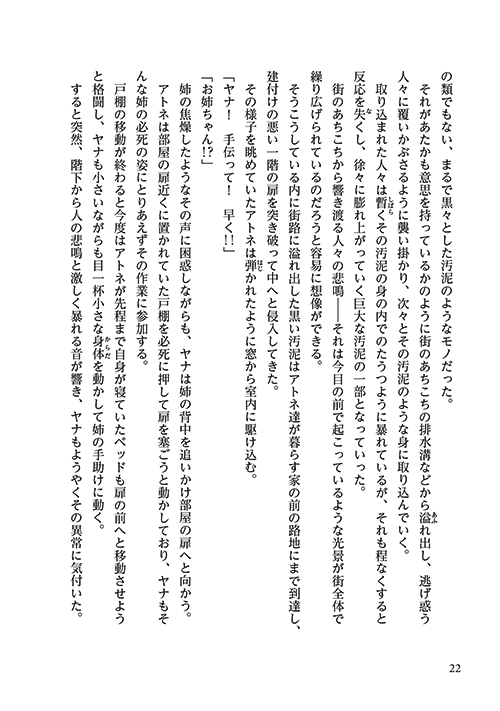 の類でもない、まるで黒々とした汚泥のようなモノだった。
それがあたかも意思を持っているかのように街のあちこちの排水溝などから溢れ出し、逃げ惑う
人々に覆いかぶさるように襲い掛かり、次々とその汚泥のような身に取り込んでいく。
取り込まれた人々は暫くその汚泥の身の内でのたうつように暴れているが、それも程なくすると
反応を失くし、徐々に膨れ上がっていく巨大な汚泥の一部となっていった。
街のあちこちから響き渡る人々の悲鳴――それは今目の前で起こっているような光景が街全体で
繰り広げられているのだろうと容易に想像ができる。
そうこうしている内に街路に溢れ出した黒い汚泥はアトネ達が暮らす家の前の路地にまで到達し、
建付けの悪い一階の扉を突き破って中へと侵入してきた。
その様子を眺めていたアトネは弾かれたように窓から室内に駆け込む。
「ヤナ！　手伝って！　早く!!」
「お姉ちゃん!?」
姉の焦燥したようなその声に困惑しながらも、ヤナは姉の背中を追いかけ部屋の扉へと向かう。
アトネは部屋の扉近くに置かれていた戸棚を必死に押して扉を塞ごうと動かしており、ヤナもそ
んな姉の必死の姿にとりあえずその作業に参加する。
戸棚の移動が終わると今度はアトネが先程まで自身が寝ていたベッドも扉の前へと移動させよう
と格闘し、ヤナも小さいながらも目一杯小さな身体を動かして姉の手助けに動く。
すると突然、階下から人の悲鳴と激しく暴れる音が響き、ヤナもようやくその異常に気付いた。
22